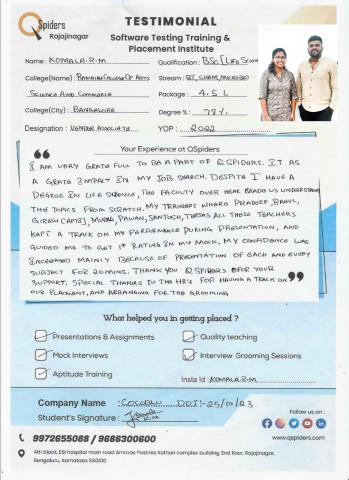 QSpiders
Rajajinagar
TESTIMONIAL
Software Testing Training &
Placement Institute
Name : KOMALA.R.M
Qualification : BSc [LIFE SCIEN
College(Name) : RAMAIAH COLLEGE OF ARTS
Stream : BT, CHEM, MICROBIO
SCIENCE AND COMMERCE
Package : 4.5 L
College(City) : BANGALORE
Degree % : 78%
Designation : VENDOR ASSOCIATE
YOP : 2022
Your Experience at QSpiders
I AM VERY GRATE FULL TO BE A PART OF QSPIDERS. IT AS
A GRATE IMPACT IN MY JOB SEARCH, DESPITE I HAVE A
DEGREE IN LIFE SCIENCE, THE FACULTY OVER HEAR MADE US UNDERSTAND
THE TOPICS FROM SCRATCH, MY TRAINERS WHERE PRADEEP, RAHUL,
GIRISH, MURALI, PAWAN, SANTOSH, THEJAS ALL THESE TEACHERS
KEPT A TRACK ON MY PERFORMANCE DURING PRESENTATION, AND
GUIDED ME TO GET 1* RATING IN MY MOCK, MY CONFIDENCE WAS
INCREASED MAINLY BECAUSE OF PRESENTATION OF EACH AND EVERY
SUBJECT FOR 20MINS. THANK YOU QSPIDERS FOR YOUR
SUPPORT. SPECIAL THANKS TO THE HR'S FOR HAVING A TRACK ON
OUR PLACMENT, AND ARRANGING FOR THE GROOMING
What helped you in getting placed ?
Presentations & Assignments
Quality teaching
Mock Interviews
Interview Grooming Sessions
Aptitude Training
Insta Id : KOMALA.R.M
Company Name : COCOBLU DOJ:- 25/10/23
Student's Signature :
Follow us on :
9972655088 / 9686300600
www.qspiders.com
4th block, ESI hospital main road Ammas Pastries Kathari complex building 2nd floor, Rajajinagar,
Bengaluru, Karnataka 560010